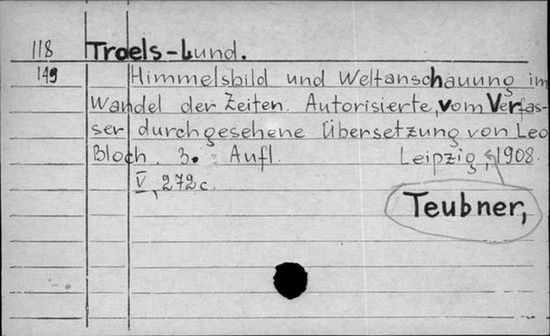 118 Troels-Lund.
149 Himmelsbild und Weltanschauung im
Wandel der Zeiten. Autorisierte, vom Verfas-
ser durchgesehene Übersetzung von Leo
Bloch. 3. Aufl. Leipzig, 1908.
V, 272 c.
Teubner,